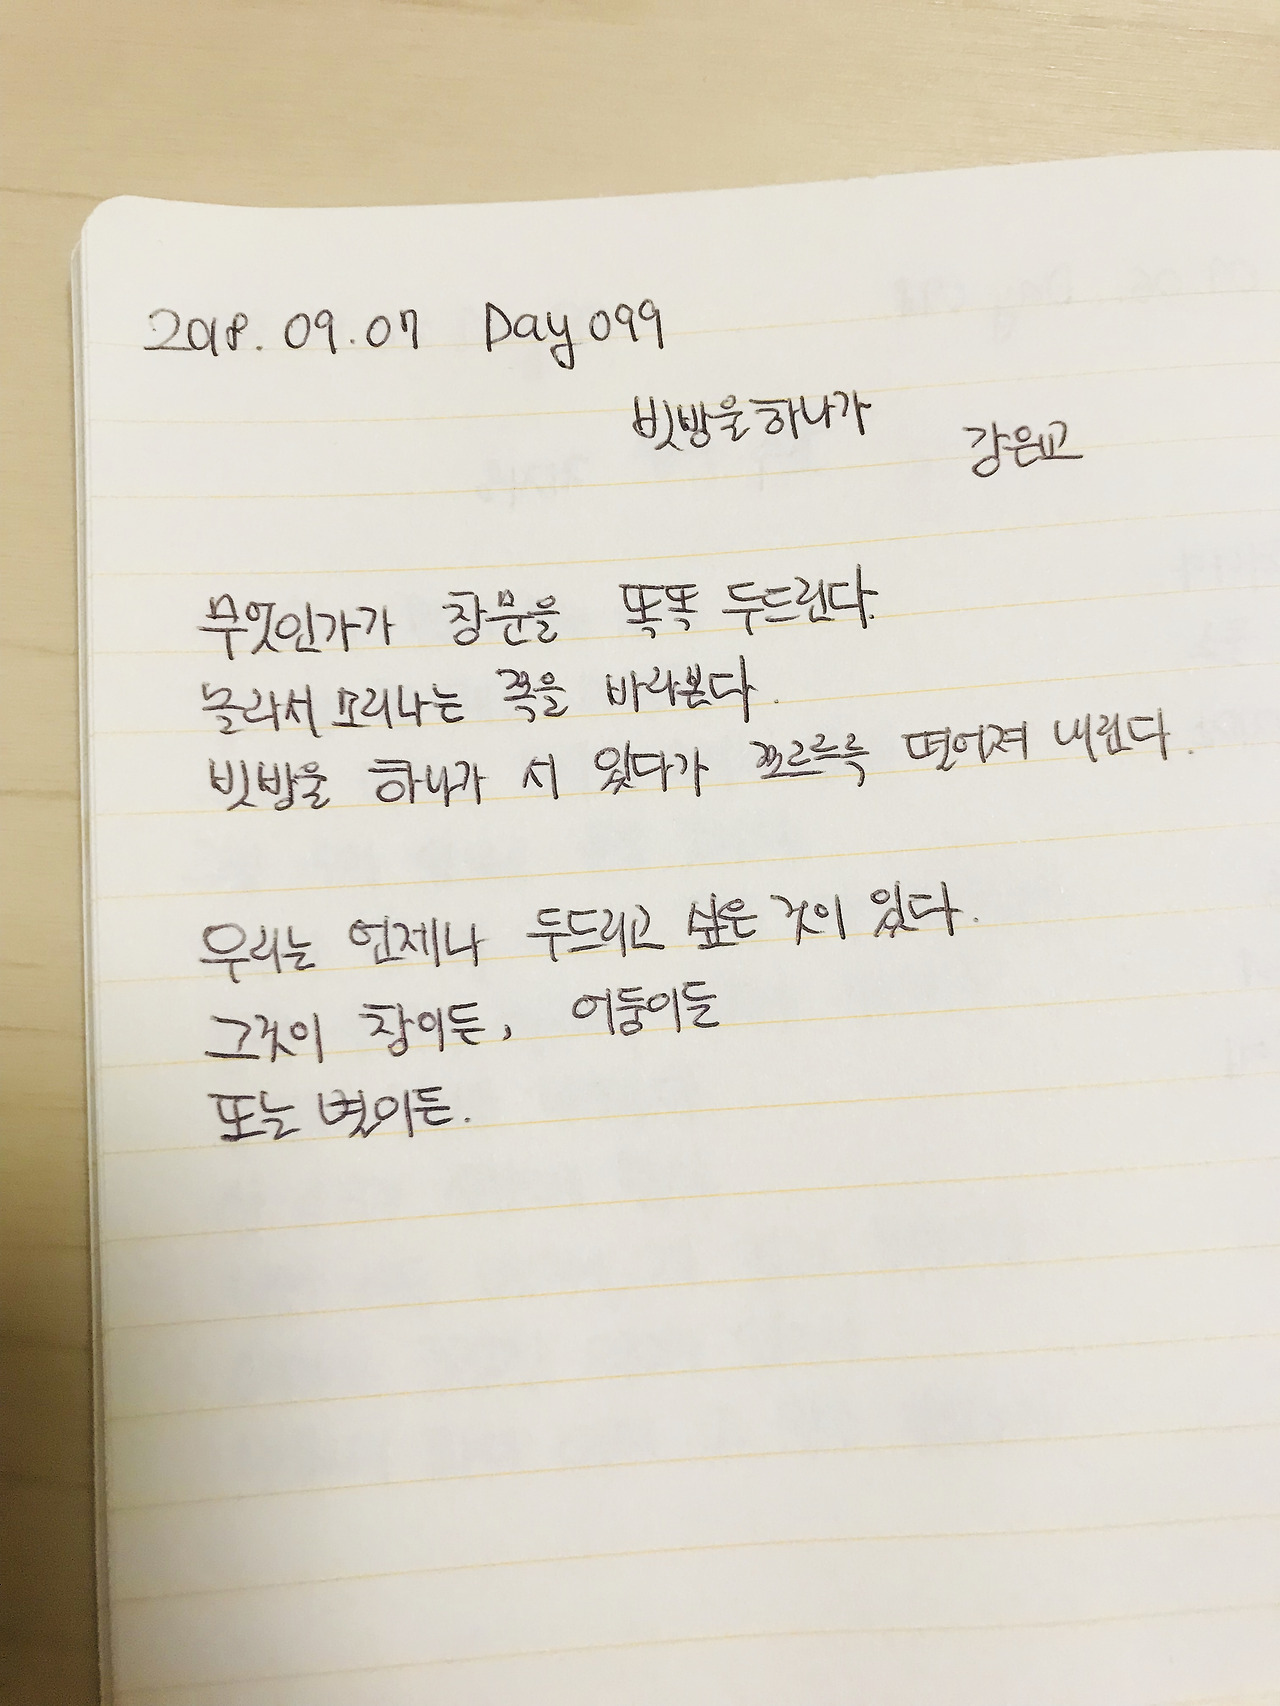 2018. 09. 07 Day 099
빗방울 하나가
강은교
무엇인가가 창문을 똑똑 두드린다.
놀라서 소리나는 쪽을 바라본다.
빗방울 하나가 서 있다가 쪼르르륵 떨어져 내린다.
우리는 언제나 두드리고 싶은 것이 있다.
그것이 창이든, 어둠이든
또는 별이든.